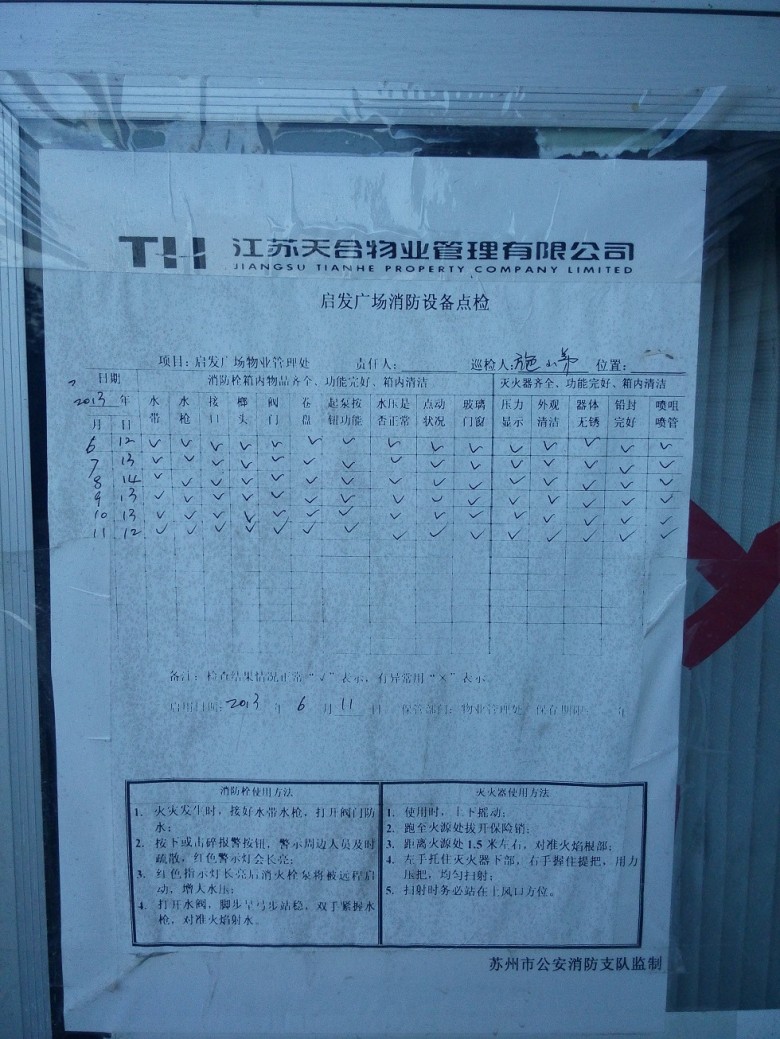 TH 江苏天合物业管理有限公司
JIANGSU TIANHE PROPERTY COMPANY LIMITED
启发广场消防设备点检
项目：启发广场物业管理处 责任人： 巡检人：施小弟 位置：
日期 消防栓箱内物品齐全、功能完好、箱内清洁 灭火器齐全、功能完好、箱内清洁
2013 年 水 水 接 榔 阀 卷 起泵按 水压是 点动 玻璃 压力 外观 器体 铅封 喷咀
月 日 带 枪 口 头 门 盘 钮功能 否正常 状况 门窗 显示 清洁 无锈 完好 喷管
6 12 ✓ ✓ ✓ ✓ ✓ ✓ ✓ ✓ ✓ ✓ ✓ ✓ ✓ ✓ ✓
7 13 ✓ ✓ ✓ ✓ ✓ ✓ ✓ ✓ ✓ ✓ ✓ ✓ ✓ ✓ ✓
8 14 ✓ ✓ ✓ ✓ ✓ ✓ ✓ ✓ ✓ ✓ ✓ ✓ ✓ ✓ ✓
9 13 ✓ ✓ ✓ ✓ ✓ ✓ ✓ ✓ ✓ ✓ ✓ ✓ ✓ ✓ ✓
10 13 ✓ ✓ ✓ ✓ ✓ ✓ ✓ ✓ ✓ ✓ ✓ ✓ ✓ ✓ ✓
11 12 ✓ ✓ ✓ ✓ ✓ ✓ ✓ ✓ ✓ ✓ ✓ ✓ ✓ ✓ ✓
备注：检查结果情况正常“√”表示，有异常用“×”表示
启用日期：2013 年 6 月 11 日 保管部门：物业管理处 保存期限 年
消防栓使用方法
1. 火灾发生时，接好水带水枪，打开阀门防
水；
2. 按下或击碎报警按钮，警示周边人员及时
疏散，红色警示灯会长亮；
3. 红色指示灯长亮后消火栓泵将被远程启
动，增人水压；
4. 打开水阀，脚步呈弓步站稳，双手紧握水
枪，对准火焰射水。
灭火器使用方法
1. 使用时，上下摇动；
2. 跑至火源处拔开保险销；
3. 距离火源处1.5米左右，对准火焰根部；
4. 左手托住灭火器下部，右手握住提把，用力
压把，均匀扫射；
5. 扫射时务必站在上风口方位。
苏州市公安消防支队监制